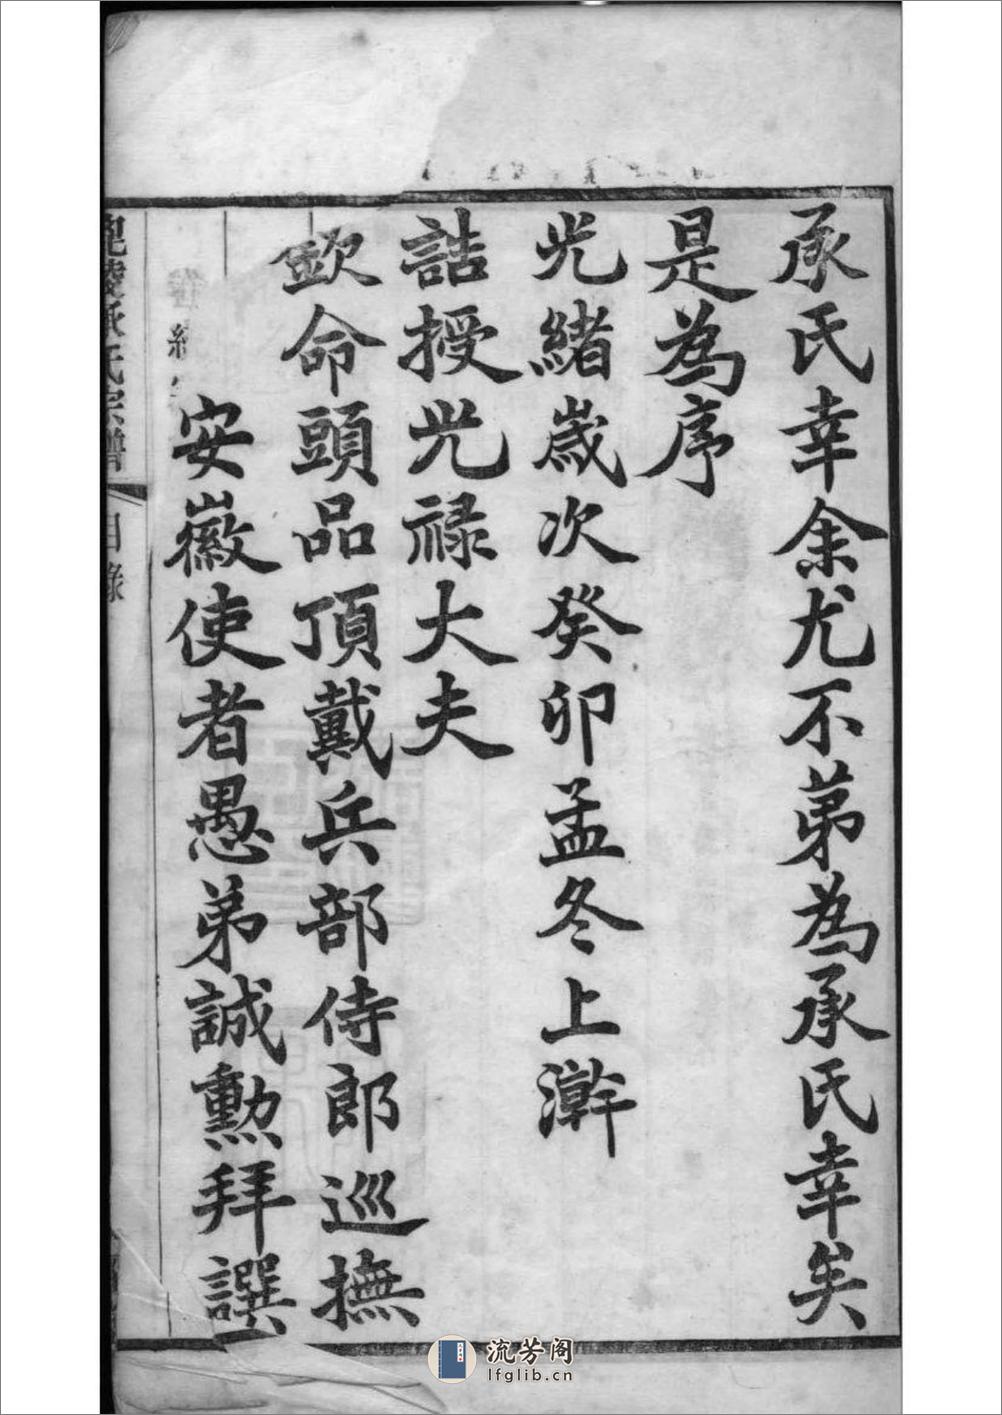 承氏幸余尤不苐為承氏幸矣
是為序
光緒歲次癸卯孟冬上澣
誥授光祿大夫
欽命頭品頂戴兵部侍郎巡撫
安徽使者愚弟誠勳拜譔
毘陵承氏宗譜
目錄
流芳阁
lfglib.cn